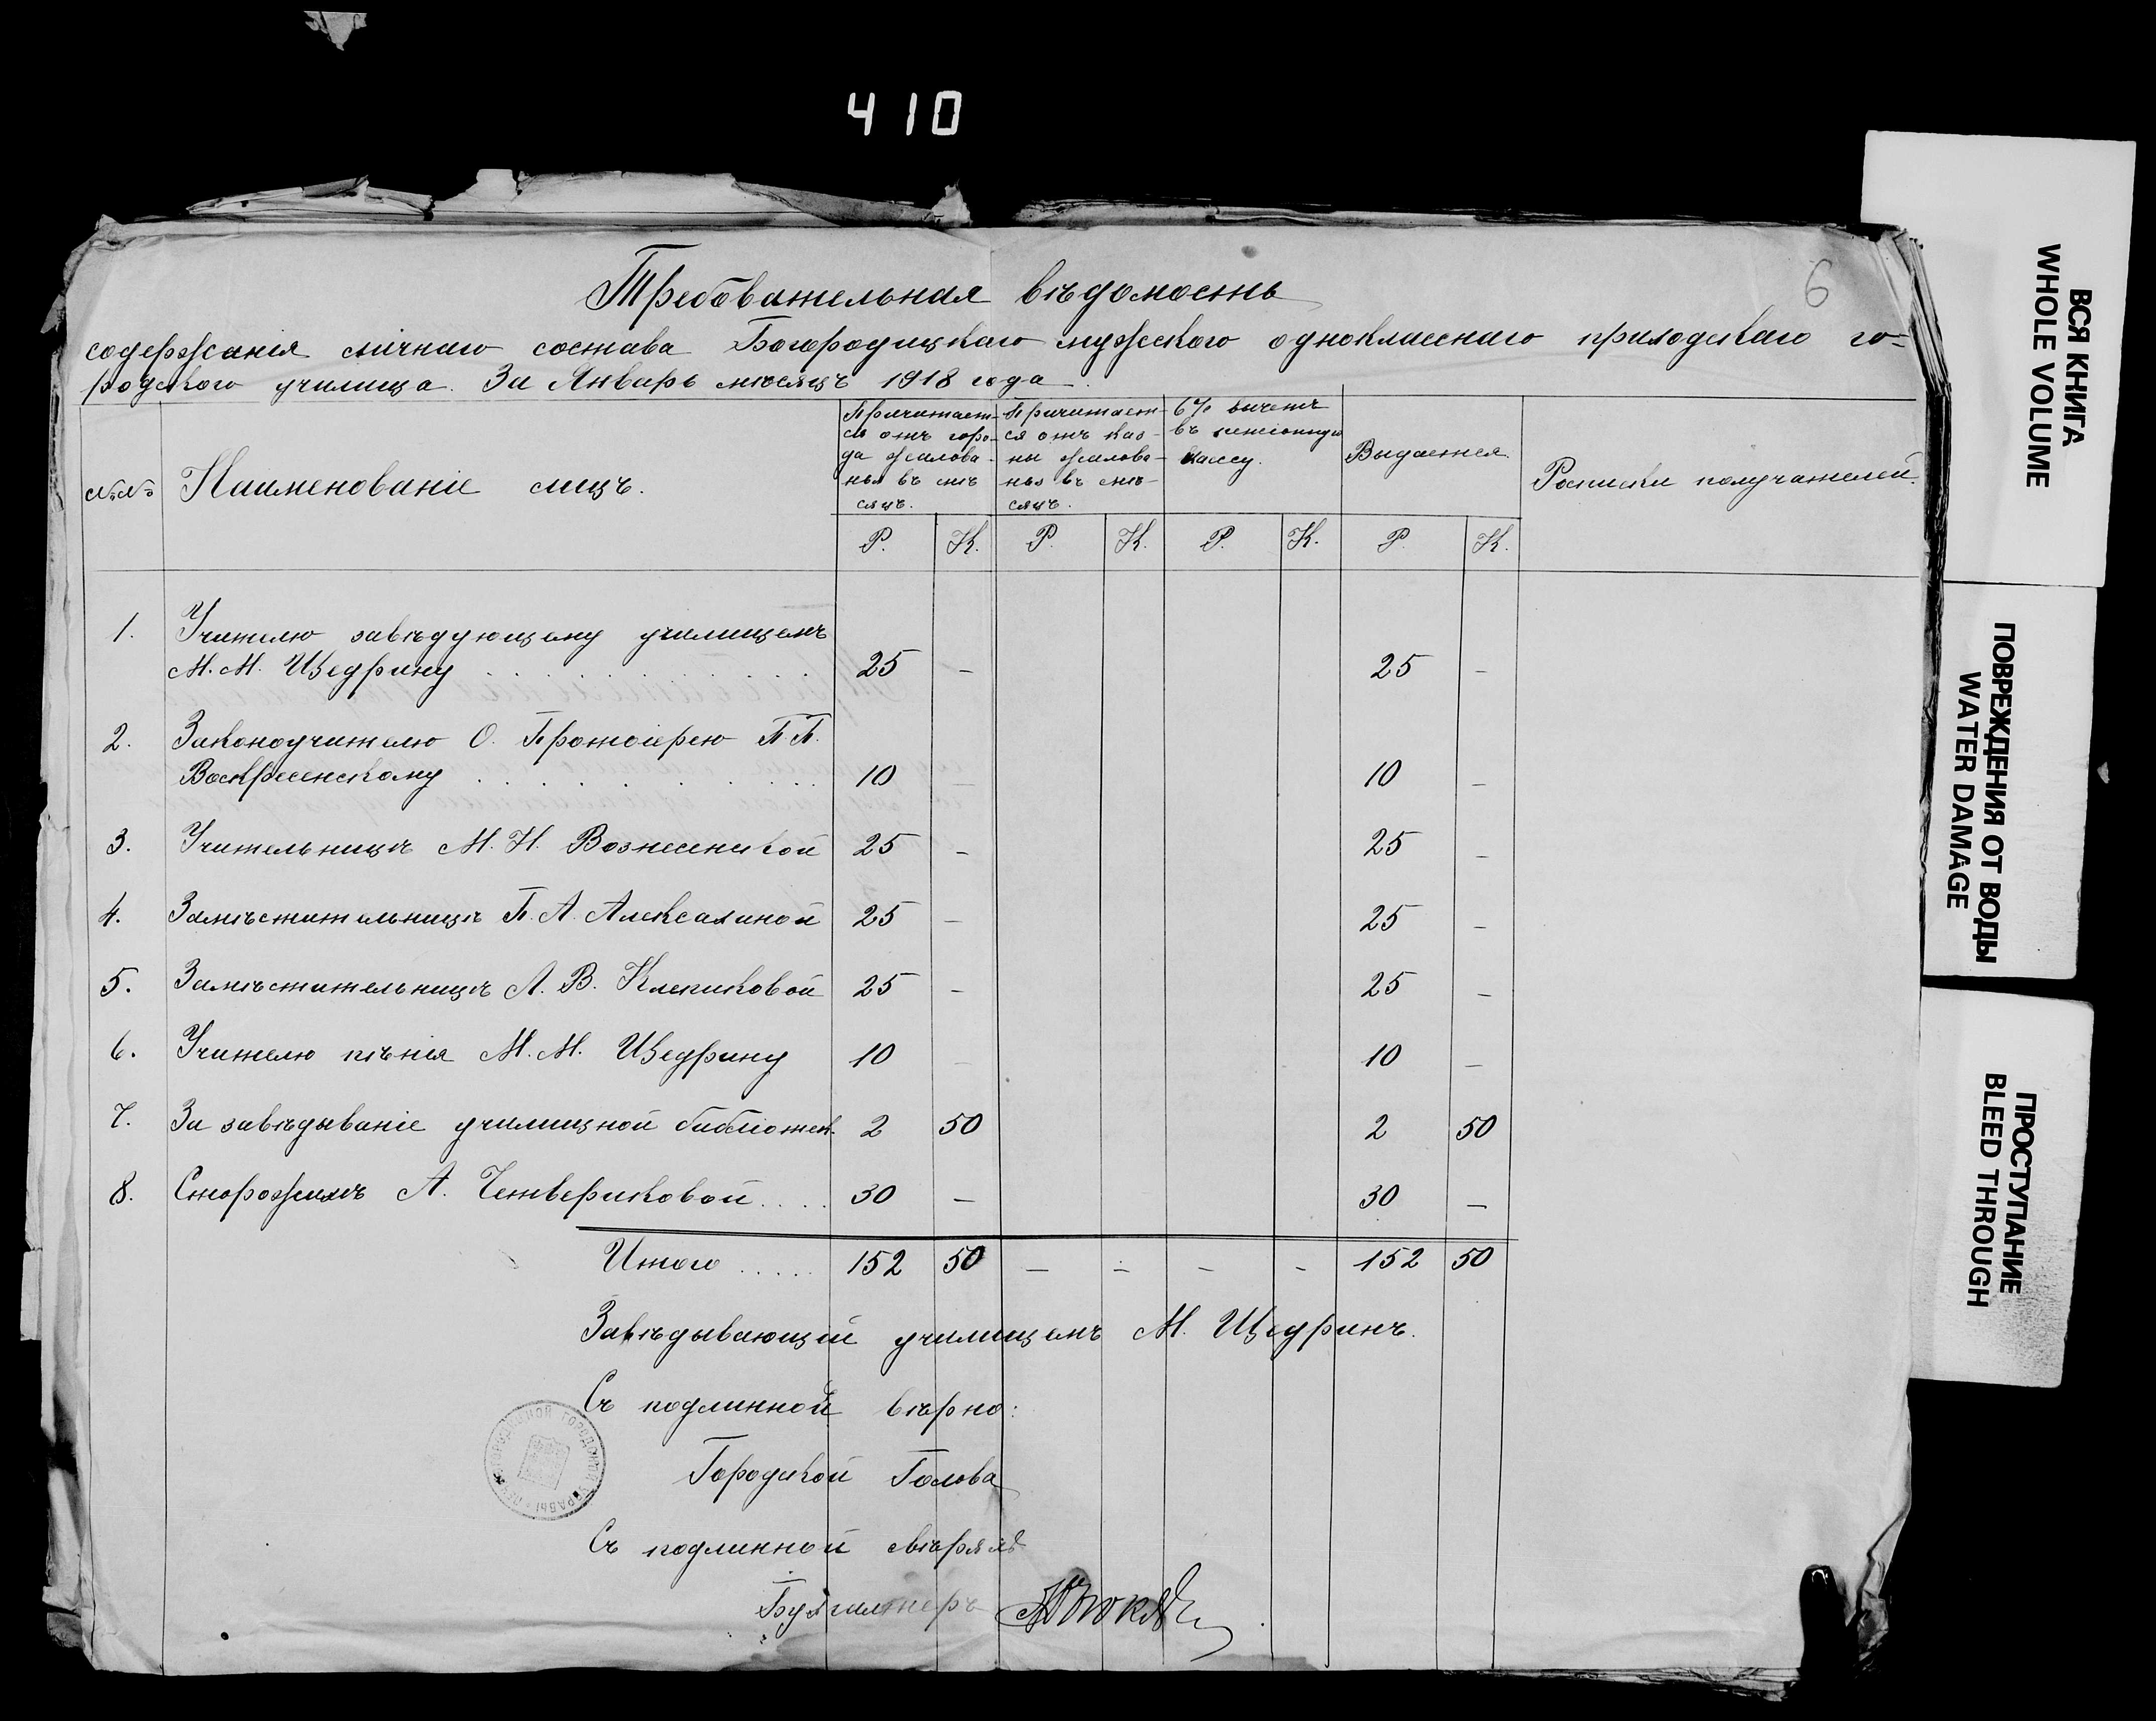 410
6
Требовательная вѣдомость
содержанія личнаго состава Богородицкаго мужского одноклассного приходскаго го-
родского училища. За Январь мѣсяцъ 1918 года
№№ Наименованіе лицъ. Причитает- Причитает- 6% вычетъ Выдается. Росписки получателей.
ся отъ горо- ся отъ каз- въ пенсіонную
да жалова- ны жалова- кассу.
нья въ мѣ- нья въ мѣ-
сяцъ. сяцъ.
Р. К. Р. К. Р. К. Р. К.
1. Учителю завѣдующему училищемъ
М. М. Щедрину . . . . . . . 25 – 25 –
2. Законоучителю О. Протоіерею П. П.
Воскресенскому . . . . . . . 10 – 10 –
3. Учительницѣ М. Н. Вознесенской 25 – 25 –
4. Замѣстительницѣ П. А. 25 – 25 –
5. Замѣстительницѣ А. В. Клепиковой 25 – 25 –
6. Учителю пѣнія М. М. Щедрину 10 – 10 –
7. За завѣдываніе училищной библіотек. 2 50 2 50
8. Сторожихѣ А. Четвериковой . . . . 30 – 30 –
Итого . . . . . 152 50 – – – – 152 50
Завѣдывающій училищемъ М. Щедринъ.
Съ подлинной вѣрно:
Городской Голова
Съ подлинной свѣрялъ
Бухгалтеръ
ВСЯ КНИГА
WHOLE VOLUME
ПОВРЕЖДЕНИЯ ОТ ВОДЫ
WATER DAMAGE
ПРОСТУПАНИЕ
BLEED THROUGH